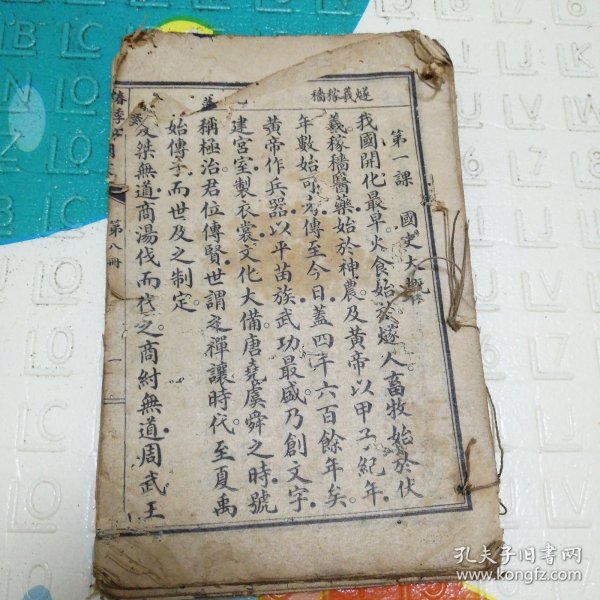 燧羲稼穡
第一課　國史大概
我國開化最早。火食始於燧人。畜牧始於伏
羲。稼穡醫藥。始於神農。及黃帝以甲子紀年。
年數始可考。傳至今日。蓋四千六百餘年矣。
黃帝作兵器以平苗族。武功最盛。乃創文字。
建宮室。製衣裳。文化大備。唐堯虞舜之時。號
稱極治。君位傳賢。世謂之禪讓時代。至夏禹
始傳子。而世及之制定。
桀無道。商湯伐而代之。商紂無道。周武王
第八冊
一
孔夫子旧书网
www.kongfz.com